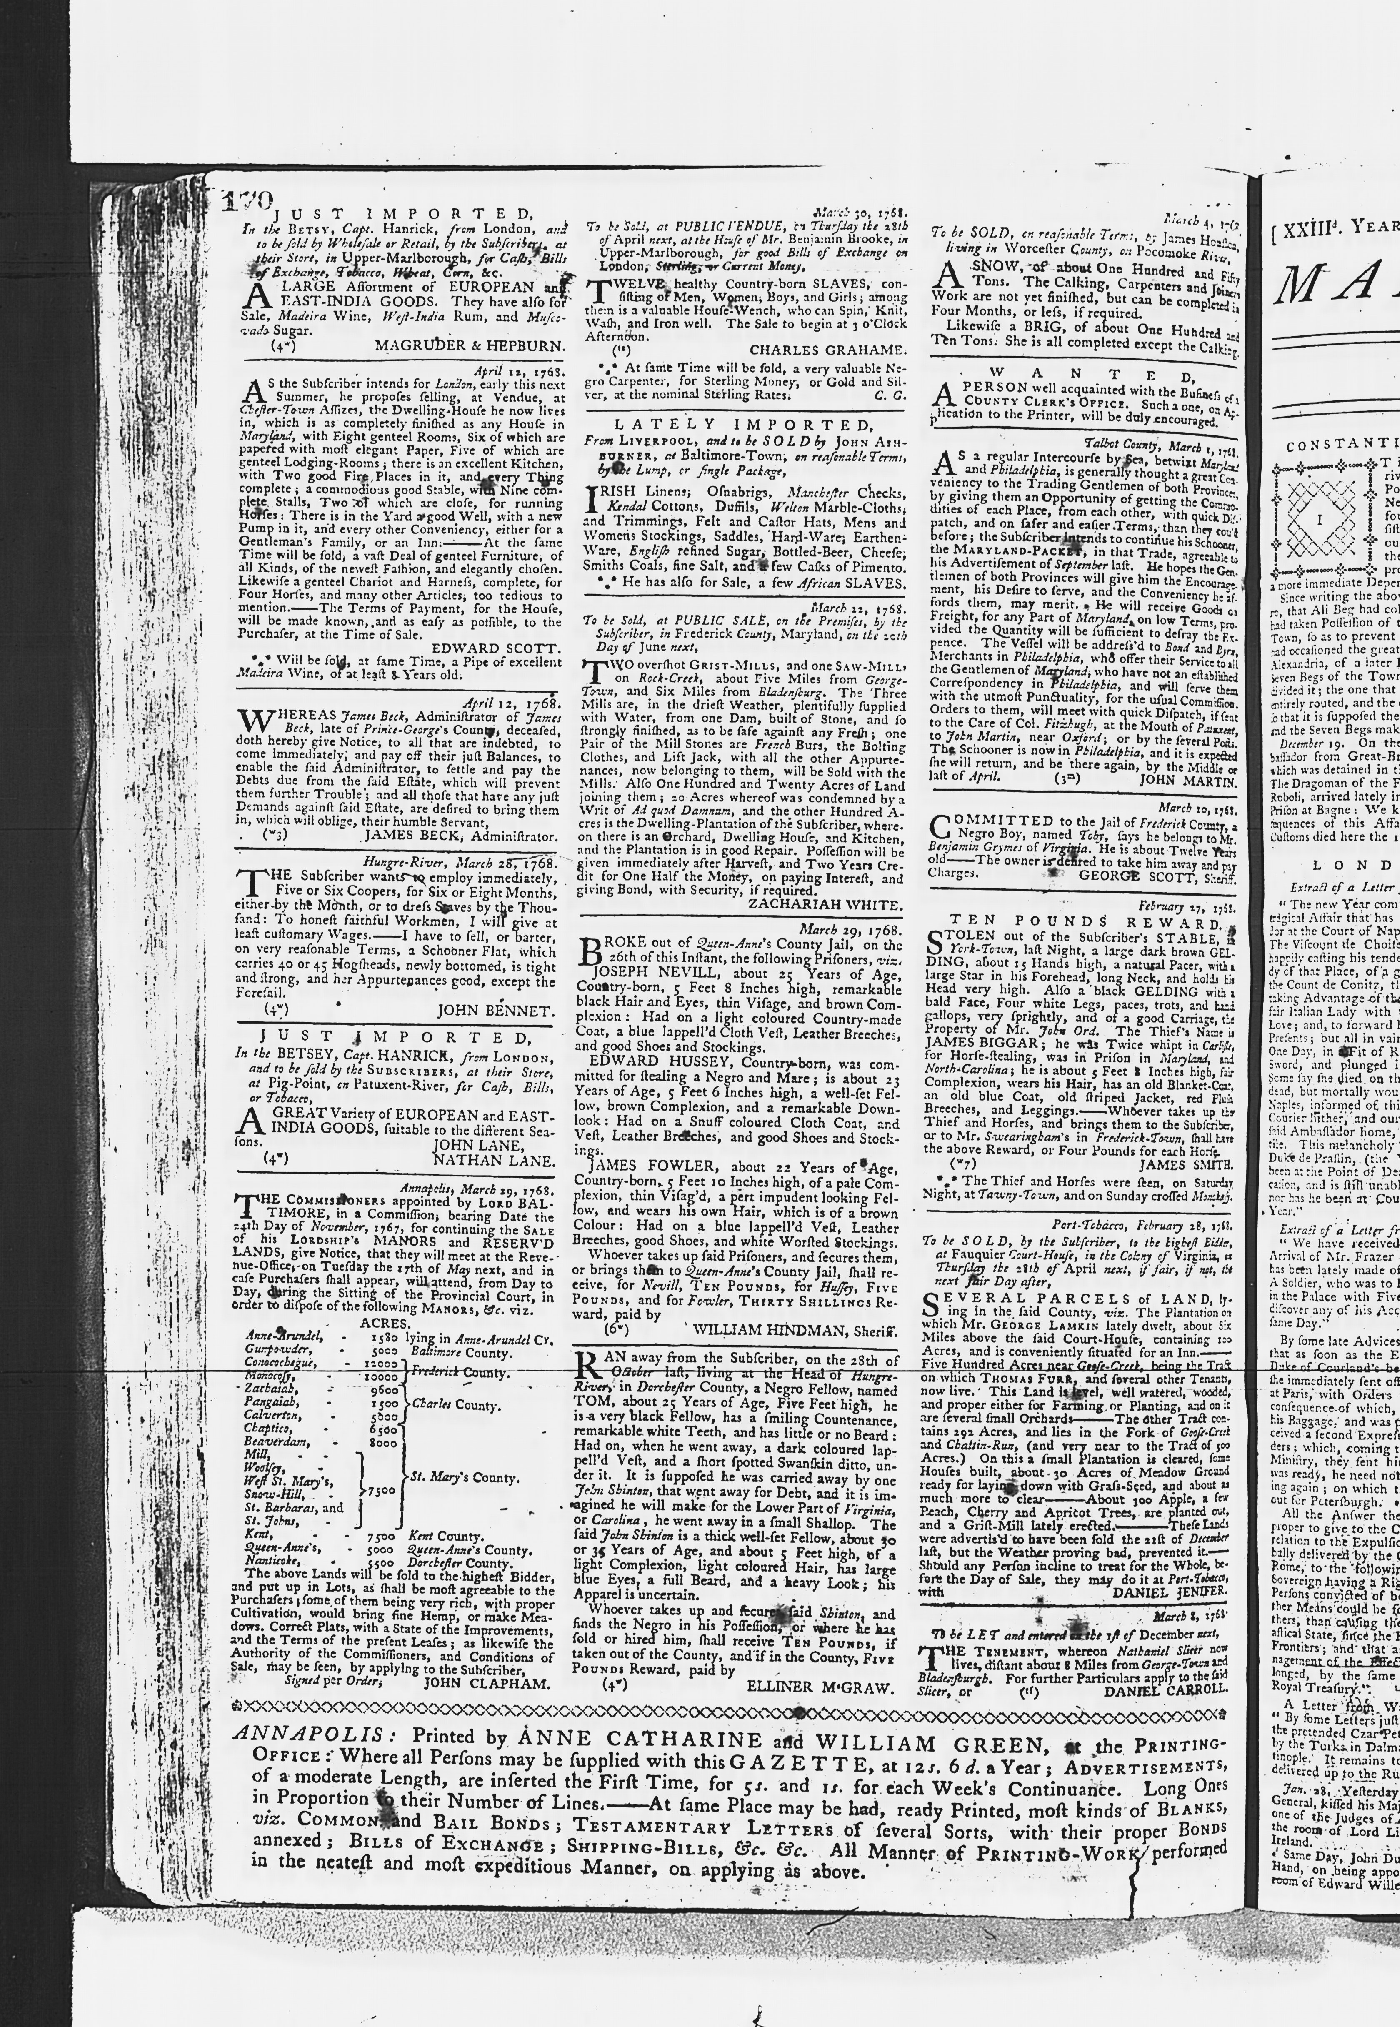 170
JUST IMPORTED,
In the BETSY, Capt. Hanrick, from London, and
to be sold by Wholesale or Retail, by the Subscribers, at
their Store, in Upper-Marlborough, for Cash, Bills
of Exchange, Tobacco, Wheat, Corn, &c.
A LARGE Assortment of EUROPEAN and
EAST-INDIA GOODS. They have also for
Sale, Madeira Wine, West-India Rum, and Musco-
vado Sugar.
(4w) MAGRUDER & HEPBURN.
April 12, 1768.
AS the Subscriber intends for London, early this next
Summer, he proposes selling, at Vendue, at
Chester-Town Assizes, the Dwelling-House he now lives
in, which is as completely finished as any House in
Maryland, with Eight genteel Rooms, Six of which are
papered with most elegant Paper, Five of which are
genteel Lodging-Rooms; there is an excellent Kitchen,
with Two good Fire Places in it, and every Thing
complete; a commodious good Stable, with Nine com-
plete Stalls, Two of which are close, for running
Horses: There is in the Yard a good Well, with a new
Pump in it, and every other Conveniency, either for a
Gentleman's Family, or an Inn:——At the same
Time will be sold, a vast Deal of genteel Furniture, of
all Kinds, of the newest Fashion, and elegantly chosen.
Likewise a genteel Chariot and Harness, complete, for
Four Horses, and many other Articles, too tedious to
mention.——The Terms of Payment, for the House,
will be made known, and as easy as possible, to the
Purchaser, at the Time of Sale.
EDWARD SCOTT.
*⁎* Will be sold, at same Time, a Pipe of excellent
Madeira Wine, of at least 8 Years old.
April 12, 1768.
WHEREAS James Beck, Administrator of James
Beck, late of Prince-George's County, deceased,
doth hereby give Notice, to all that are indebted, to
come immediately, and pay off their just Balances, to
enable the said Administrator, to settle and pay the
Debts due from the said Estate, which will prevent
them further Trouble; and all those that have any just
Demands against said Estate, are desired to bring them
in, which will oblige, their humble Servant,
(w3) JAMES BECK, Administrator.
Hungre-River, March 28, 1768.
THE Subscriber wants to employ immediately,
Five or Six Coopers, for Six or Eight Months,
either by the Month, or to dress Staves by the Thou-
sand: To honest faithful Workmen, I will give at
least customary Wages.——I have to sell, or barter,
on very reasonable Terms, a Schooner Flat, which
carries 40 or 45 Hogsheads, newly bottomed, is tight
and strong, and her Appurtenances good, except the
Foresail.
(4w) JOHN BENNET.
JUST IMPORTED,
In the BETSEY, Capt. HANRICK, from LONDON,
and to be sold by the SUBSCRIBERS, at their Store,
at Pig-Point, on Patuxent-River, for Cash, Bills,
or Tobacco,
A GREAT Variety of EUROPEAN and EAST-
INDIA GOODS, suitable to the different Sea-
sons. JOHN LANE,
(4w) NATHAN LANE.
Annapolis, March 29, 1768.
THE COMMISSIONERS appointed by LORD BAL-
TIMORE, in a Commission, bearing Date the
24th Day of November, 1767, for continuing the SALE
of his LORDSHIP'S MANORS and RESERV'D
LANDS, give Notice, that they will meet at the Reve-
nue-Office, on Tuesday the 17th of May next, and in
case Purchasers shall appear, will attend, from Day to
Day, during the Sitting of the Provincial Court, in
order to dispose of the following MANORS, &c. viz.
ACRES.
Anne-Arundel, - 1580 lying in Anne-Arundel Cy.
Gunpowder, - 5000 Baltimore County.
Conococheague, - 12000
Monocosy, - 10000 Frederick County.
Zachaiah, - 9600
Pangaiah, - 1500 Charles County.
Calverton, - 5000
Chaptico, - 6500
Beaverdam, - 8000
Mill, - -
Woolsey, -
West St. Mary's, 7500 St. Mary's County.
Snow-Hill, -
St. Barbaras, and
St. Johns, -
Kent, - 7500 Kent County.
Queen-Anne's, - 5000 Queen-Anne's County.
Nanticoke, - 5500 Dorchester County.
The above Lands will be sold to the highest Bidder,
and put up in Lots, as shall be most agreeable to the
Purchasers; some of them being very rich, with proper
Cultivation, would bring fine Hemp, or make Mea-
dows. Correct Plats, with a State of the Improvements,
and the Terms of the present Leases; as likewise the
Authority of the Commissioners, and Conditions of
Sale, may be seen, by applying to the Subscriber,
Signed per Order, JOHN CLAPHAM.
March 30, 1768.
To be Sold, at PUBLIC VENDUE, on Thursday the 28th
of April next, at the House of Mr. Benjamin Brooke, in
Upper-Marlborough, for good Bills of Exchange on
London, Sterling, or Current Money,
TWELVE healthy Country-born SLAVES, con-
sisting of Men, Women, Boys, and Girls; among
them is a valuable House-Wench, who can Spin, Knit,
Wash, and Iron well. The Sale to begin at 3 o'Clock
Afternoon.
(tf) CHARLES GRAHAME.
*⁎* At same Time will be sold, a very valuable Ne-
gro Carpenter, for Sterling Money, or Gold and Sil-
ver, at the nominal Sterling Rates. C. G.
LATELY IMPORTED,
From LIVERPOOL, and to be SOLD by JOHN ASH-
BURNER, at Baltimore-Town, on reasonable Terms,
by the Lump, or single Package,
IRISH Linens; Osnabrigs, Manchester Checks,
Kendal Cottons, Duffils, Welton Marble-Cloths,
and Trimmings, Felt and Castor Hats, Mens and
Womens Stockings, Saddles, Hard-Ware, Earthen-
Ware, English refined Sugar, Bottled-Beer, Cheese,
Smiths Coals, fine Salt, and a few Casks of Pimento.
*⁎* He has also for Sale, a few African SLAVES.
March 22, 1768.
To be Sold, at PUBLIC SALE, on the Premises, by the
Subscriber, in Frederick County, Maryland, on the 20th
Day of June next,
TWO overshot GRIST-MILLS, and one SAW-MILL,
on Rock-Creek, about Five Miles from George-
Town, and Six Miles from Bladensburg. The Three
Mills are, in the driest Weather, plentifully supplied
with Water, from one Dam, built of Stone, and so
strongly finished, as to be safe against any Fresh; one
Pair of the Mill Stones are French Burs, the Bolting
Clothes, and Lift Jack, with all the other Appurte-
nances, now belonging to them, will be Sold with the
Mills. Also One Hundred and Twenty Acres of Land
joining them; 20 Acres whereof was condemned by a
Writ of Ad quod Damnum, and the other Hundred A-
cres is the Dwelling-Plantation of the Subscriber, where-
on there is an Orchard, Dwelling House, and Kitchen,
and the Plantation is in good Repair. Possession will be
given immediately after Harvest, and Two Years Cre-
dit for One Half the Money, on paying Interest, and
giving Bond, with Security, if required.
ZACHARIAH WHITE.
March 29, 1768.
BROKE out of Queen-Anne's County Jail, on the
26th of this Instant, the following Prisoners, viz.
JOSEPH NEVILL, about 25 Years of Age,
Country-born, 5 Feet 8 Inches high, remarkable
black Hair and Eyes, thin Visage, and brown Com-
plexion: Had on a light coloured Country-made
Coat, a blue lappell'd Cloth Vest, Leather Breeches,
and good Shoes and Stockings.
EDWARD HUSSEY, Country-born, was com-
mitted for stealing a Negro and Mare; is about 23
Years of Age, 5 Feet 6 Inches high, a well-set Fel-
low, brown Complexion, and a remarkable Down-
look: Had on a Snuff coloured Cloth Coat, and
Vest, Leather Breeches, and good Shoes and Stock-
ings.
JAMES FOWLER, about 22 Years of Age,
Country-born, 5 Feet 10 Inches high, of a pale Com-
plexion, thin Visag'd, a pert impudent looking Fel-
low, and wears his own Hair, which is of a brown
Colour: Had on a blue lappell'd Vest, Leather
Breeches, good Shoes, and white Worsted Stockings.
Whoever takes up said Prisoners, and secures them,
or brings them to Queen-Anne's County Jail, shall re-
ceive, for Nevill, TEN POUNDS, for Hussey, FIVE
POUNDS, and for Fowler, THIRTY SHILLINGS Re-
ward, paid by
(6w) WILLIAM HINDMAN, Sheriff.
RAN away from the Subscriber, on the 28th of
October last, living at the Head of Hungre-
River, in Dorchester County, a Negro Fellow, named
TOM, about 25 Years of Age, Five Feet high, he
is a very black Fellow, has a smiling Countenance,
remarkable white Teeth, and has little or no Beard:
Had on, when he went away, a dark coloured lap-
pell'd Vest, and a short spotted Swanskin ditto, un-
der it. It is supposed he was carried away by one
John Shinton, that went away for Debt, and it is im-
agined he will make for the Lower Part of Virginia,
or Carolina, he went away in a small Shallop. The
said John Shinton is a thick well-set Fellow, about 30
or 35 Years of Age, and about 5 Feet high, of a
light Complexion, light coloured Hair, has large
blue Eyes, a full Beard, and a heavy Look; his
Apparel is uncertain.
Whoever takes up and secures said Shinton, and
finds the Negro in his Possession, or where he has
sold or hired him, shall receive TEN POUNDS, if
taken out of the County, and if in the County, FIVE
POUNDS Reward, paid by
(4w) ELLINER McGRAW.
March 4, 176
To be SOLD, on reasonable Terms, by James
living in Worcester County, on Pocomoke River,
A SNOW, of about One Hundred and Fifty
Tons. The Calking, Carpenters and Joiners
Work are not yet finished, but can be completed in
Four Months, or less, if required.
Likewise a BRIG, of about One Hundred and
Ten Tons. She is all completed except the Calking.
WANTED,
A PERSON well acquainted with the Business of a
COUNTY CLERK'S OFFICE. Such a one, on Ap-
plication to the Printer, will be duly encouraged.
Talbot County, March 1, 1768.
AS a regular Intercourse by Sea, betwixt Maryland
and Philadelphia, is generally thought a great Con-
veniency to the Trading Gentlemen of both Provinces,
by giving them an Opportunity of getting the Commo-
dities of each Place, from each other, with quick Dis-
patch, and on safer and easier Terms, than they cou'd
before; the Subscriber intends to continue his Schooner,
the MARYLAND-PACKET, in that Trade, agreeable to
his Advertisement of September last. He hopes the Gen-
tlemen of both Provinces will give him the Encourage-
ment, his Desire to serve, and the Conveniency he af-
fords them, may merit. He will receive Goods on
Freight, for any Part of Maryland, on low Terms, pro-
vided the Quantity will be sufficient to defray the Ex-
pence. The Vessel will be address'd to Bond and Byrn,
Merchants in Philadelphia, who offer their Service to all
the Gentlemen of Maryland, who have not an established
Correspondency in Philadelphia, and will serve them
with the utmost Punctuality, for the usual Commission.
Orders to them, will meet with quick Dispatch, if sent
to the Care of Col. Fitzhugh, at the Mouth of Patuxent,
to John Martin, near Oxford; or by the several Posts.
The Schooner is now in Philadelphia, and it is expected
she will return, and be there again, by the Middle or
last of April. (3m) JOHN MARTIN.
March 10, 1768.
COMMITTED to the Jail of Frederick County, a
Negro Boy, named Toby, says he belongs to Mr.
Benjamin Grymes of Virginia. He is about Twelve Years
old——The owner is desired to take him away and pay
Charges. GEORGE SCOTT, Sheriff.
February 27, 1768.
TEN POUNDS REWARD.
STOLEN out of the Subscriber's STABLE, in
York-Town, last Night, a large dark brown GEL-
DING, about 15 Hands high, a natural Pacer, with a
large Star in his Forehead, long Neck, and holds his
Head very high. Also a black GELDING with a
bald Face, Four white Legs, paces, trots, and hand
gallops, very sprightly, and of a good Carriage, the
Property of Mr. John Ord. The Thief's Name is
JAMES BIGGAR; he was Twice whipt in Carlisle,
for Horse-stealing, was in Prison in Maryland, and
North-Carolina; he is about 5 Feet 8 Inches high, fair
Complexion, wears his Hair, has an old Blanket-Coat,
an old blue Coat, old striped Jacket, red Plush
Breeches, and Leggings.——Whoever takes up the
Thief and Horses, and brings them to the Subscriber,
or to Mr. Swearingham's in Frederick-Town, shall have
the above Reward, or Four Pounds for each Horse.
(w7) JAMES SMITH.
*⁎* The Thief and Horses were seen, on Saturday
Night, at Tawny-Town, and on Sunday crossed Monocasy.
Port-Tobacco, February 28, 1768.
To be SOLD, by the Subscriber, to the highest Bidder,
at Fauquier Court-House, in the Colony of Virginia, on
Thursday the 28th of April next, if fair, if not, the
next fair Day after,
SEVERAL PARCELS of LAND, ly-
ing in the said County, viz. The Plantation on
which Mr. GEORGE LAMKIN lately dwelt, about Six
Miles above the said Court-House, containing 120
Acres, and is conveniently situated for an Inn.——
Five Hundred Acres near Goose-Creek, being the Tract
on which THOMAS FURR, and several other Tenants,
now live. This Land is level, well watered, wooded,
and proper either for Farming or Planting, and on it
are several small Orchards——The other Tract con-
tains 292 Acres, and lies in the Fork of Goose-Creek
and Chattin-Run, (and very near to the Tract of 500
Acres.) On this a small Plantation is cleared, some
Houses built, about 30 Acres of Meadow Ground
ready for laying down with Grass-Seed, and about as
much more to clear——About 300 Apple, a few
Peach, Cherry and Apricot Trees, are planted out,
and a Grist-Mill lately erected.——These Lands
were advertis'd to have been sold the 21st of December
last, but the Weather proving bad, prevented it.——
Should any Person incline to treat for the Whole, be-
fore the Day of Sale, they may do it at Port-Tobacco,
with DANIEL JENIFER.
March 8, 1768.
To be LET and entered on the 1st of December next,
THE TENEMENT, whereon Nathaniel Slicer now
lives, distant about 8 Miles from George-Town and
Bladensburgh. For further Particulars apply to the said
Slicer, or (tf) DANIEL CARROLL.
ANNAPOLIS: Printed by ANNE CATHARINE and WILLIAM GREEN, at the PRINTING-
OFFICE: Where all Persons may be supplied with this GAZETTE, at 12s. 6d. a Year; ADVERTISEMENTS,
of a moderate Length, are inserted the First Time, for 5s. and 1s. for each Week's Continuance. Long Ones
in Proportion to their Number of Lines.——At same Place may be had, ready Printed, most kinds of BLANKS,
viz. COMMON and BAIL BONDS; TESTAMENTARY LETTERS of several Sorts, with their proper BONDS
annexed; BILLS of EXCHANGE; SHIPPING-BILLS, &c. &c. All Manner of PRINTING-WORK performed
in the neatest and most expeditious Manner, on applying as above.
[XXIIId. YEAR
MA
CONSTANTI
I
a more immediate Depen
Since writing the abov
that Ali Beg had col
had taken Possession of t
Town, so as to prevent t
had occasioned the great
Alexandria, of a later
seven Begs of the Town
divided it; the one that
entirely routed, and the
is that it is supposed the
and the Seven Begs mak
December 19. On the
bassador from Great-Br
which was detained in t
The Dragoman of the F
Reboli, arrived lately in
Prison at Bagne: We k
sequences of this Affa
Customs died here the
LOND
Extract of a Letter
"The new Year com
tragical Affair that has
for at the Court of Nap
The Viscount de Chois
happily casting his tende
dy of that Place, of a g
the Count de Conitz, th
taking Advantage of the
fair Italian Lady with
Love; and, to forward
Presents; but all in vain
One Day, in a Fit of R
Sword, and plunged i
Some say she died on th
dead, but mortally wou
Naples, informed of thi
Courier hither, and our
said Ambassador home,
tile. This melancholy
Duke de Praslin, (the
been at the Point of De
casion, and is still unabl
nor has he been at Cou
Year."
Extract of a Letter fr
"We have received
Arrival of Mr. Frazer
has been lately made of
A Soldier, who was to
in the Palace with Five
discover any of his Acc
same Day."
By some late Advices
that as soon as the E
Duke of Courland's be
the immediately sent off
at Paris, with Orders
consequence of which,
his Baggage, and was p
ceived a second Expres
ders; which, coming t
Ministry, they sent hi
was ready, he need not
ing again; on which t
out for Petersburgh.
All the Answer the
proper to give to the C
relation to the Expulsio
bally delivered by the
Rome, to the following
Sovereign having a Rig
Persons convicted of be
ther Means could he s
thers, than causing the
astical State, since the
Frontiers; and that a
nagement of the Effec
longed, by the same
Royal Treasury."
A Letter from W
"By some Letters just
the pretended Czar Pet
by the Turks in Dalm
tinople. It remains to
delivered up to the Ru
Jan. 28. Yesterday
General, kissed his Maj
one of the Judges of
the room of Lord Li
Ireland.
Same Day, John Du
Hand, on being appo
room of Edward Wille